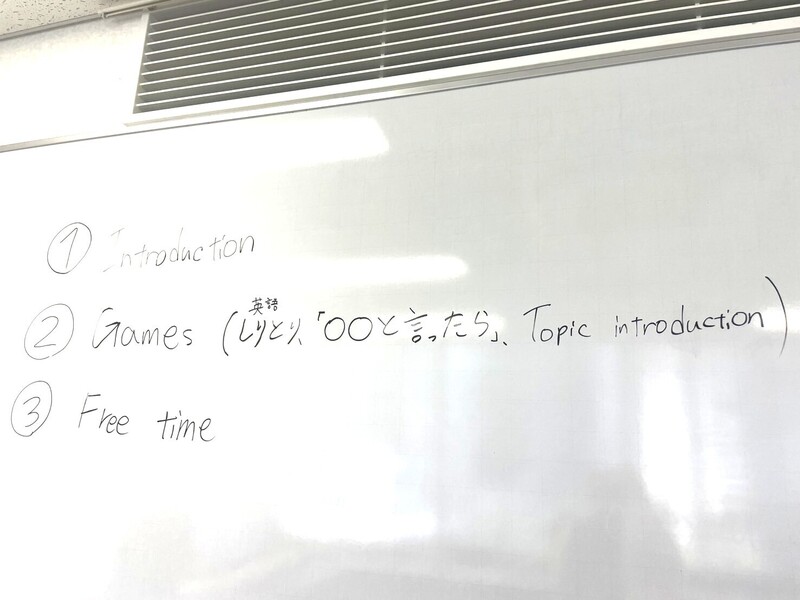 ① Introduction
英語
② Games (しりとり、「〇〇と言ったら」、Topic introduction)
③ Free time